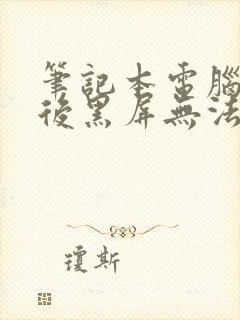 筆記本電腦
後黑屏無法
瓊斯